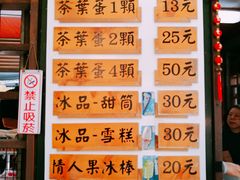 茶葉蛋1顆 13元
茶葉蛋2顆 25元
茶葉蛋4顆 50元
冰品-甜筒 30元
冰品-雪糕 30元
情人果冰棒 20元
禁止吸菸